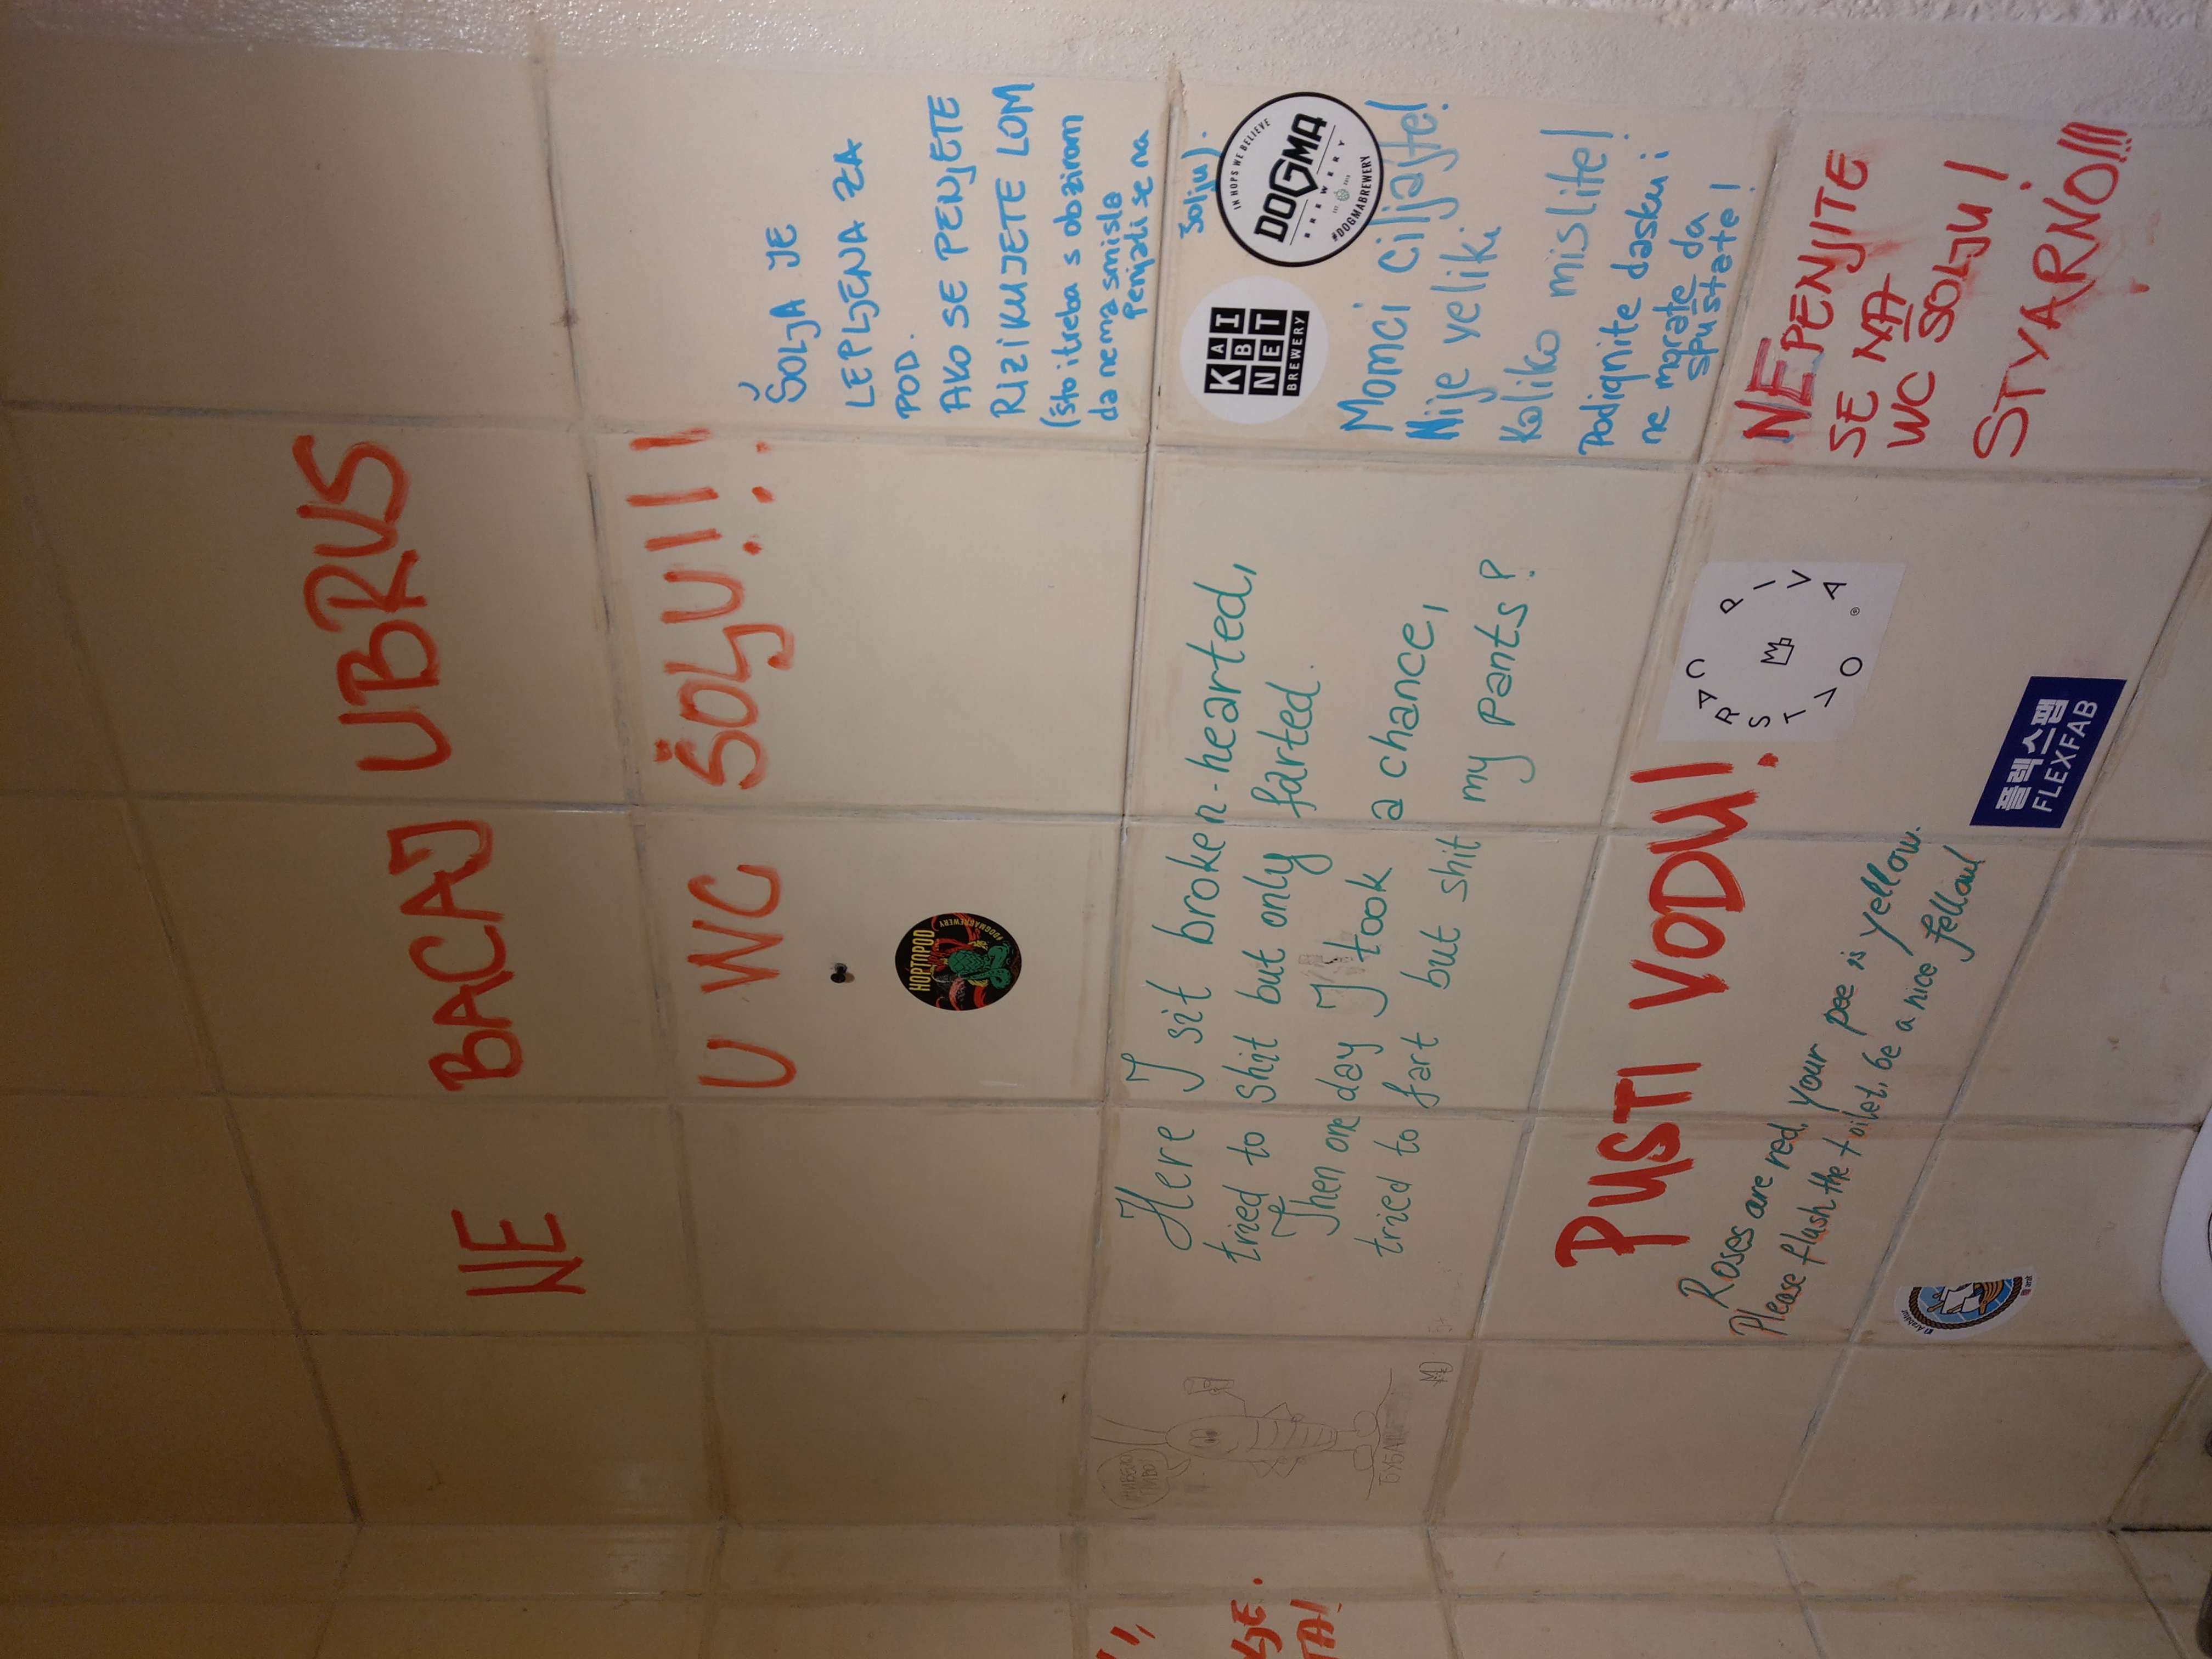 NE BACAJ UBRUS
U WC ŠOLJU!!!
ŠOLJA JE
LEPLJENA ZA
POD.
AKO SE PENJETE
RIZIKUJETE LOM
(što i treba s obzirom
da nema smisla
Penjati se na
šolju).
HOPTOPOD
#DOGMABREWERY
KABINET
BREWERY
IN HOPS WE BELIEVE
DOGMA
BREWERY
#DOGMABREWERY
Momci ciljajte!
Nije veliki
Koliko mislite!
Podignite dasku i
ne morate da
spustate!
Here I sit broken-hearted,
tried to shit but only farted.
Then one day I took a chance,
tried to fart but shit my pants?
PUSTI VODU!
Roses are red, your pee is yellow.
Please flush the toilet, be a nice fellow!
CARSTVO PIVA
플렉스팹
FLEXFAB
NE PENJITE
SE NA
WC SOLJU!
STVARNO!!!
MD